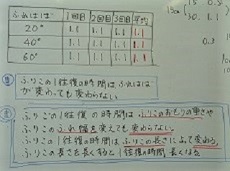 ふれはば 1回目 2回目 3回目 平均
20° 1.1 1.1 1.1 1.1
40° 1.1 1.1 1.1 1.1
60° 1.1 1.1 1.1 1.1
ふりこの1往復の時間はふれはば
が変わっても変わらない
ふりこの1往復の時間はふりこのおもりの重さや
ふりこのふれ幅を変えても変わらない。
ふりこの1往復の時間はふりこの長さによって変わる
ふりこの長さを長くすると1往復の時間 長くなる